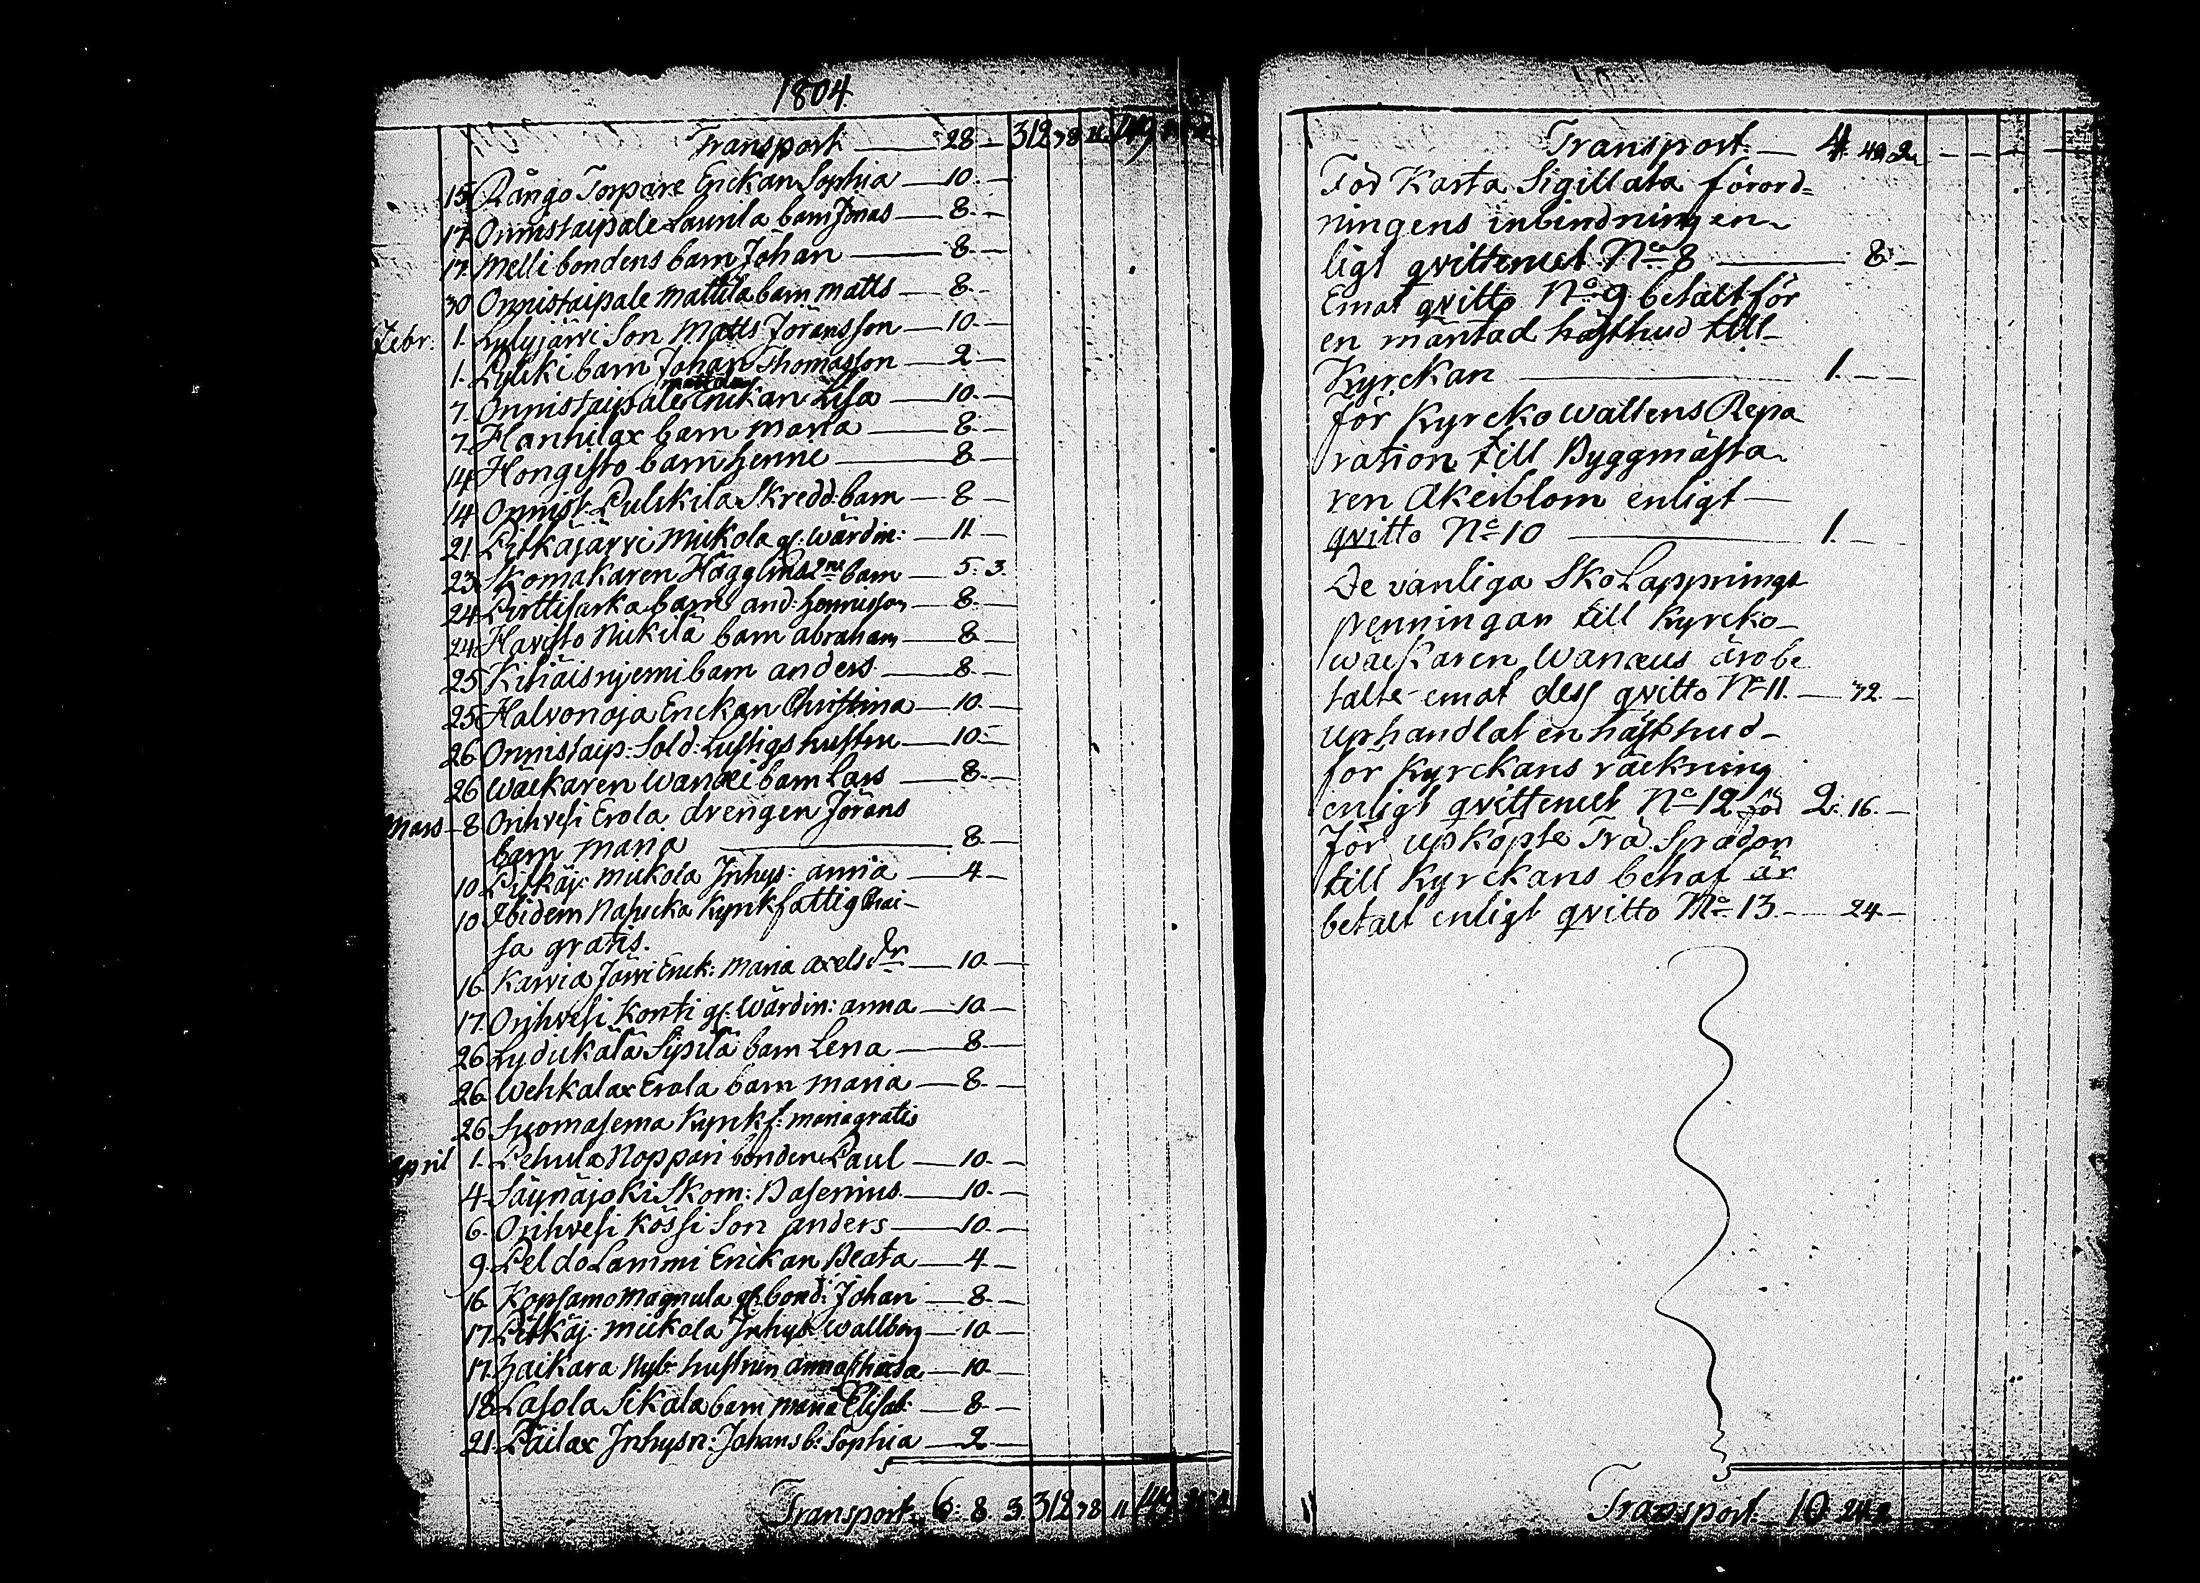 1804
Transport — 28 — 312 78 11 149
15 Rångo Torpare Enckan Sophia — 10 —
17 Onnistaipale Laurila barn Jonas — 8 —
17 Melli bondens barn Johan — 8 —
30 Onnistaipale Mattila barn Matts — 8 —
Febr: 1. Lylyjärvi Son Matts Jöransson — 10 —
1. Lylski barn Johan Thomasson — 2 —
7. Onnistaipale Enckan Lisa — 10 —
7. Hanhilax barn Maria — 8 —
14 Hongisto barn Henne — 8 —
14 Onnist: Pulskila Skredd: barn — 8 —
21 Pitkäjärvi Mickola gl: Wärdin: — 11 —
23 Skomakaren Hägglins 2ne barn — 5. 3.
24 Purttisarka barn And: Hennisson — 8 —
24 Haristo Nickilä barn Abraham — 8 —
25 Kihäisnjemi barn Anders — 8 —
25 Halvonoja Enckan Christina — 10 —
26 Onnistaip: Sold: Lustigs hustru — 10 —
26 Wäckaren Wanæi barn Lars — 8 —
Mars — 8 Orihvesi Erola drengen Jörans
barn Maria — 8 —
10 Pitkäj: Mickola Inhys: Anna — 4 —
10 Ibidem Napucka Kyrkfattig Cai-
sa gratis.
16 Karvia Järvi Enck: Maria Axelsdr — 10 —
17 Orihvesi Kontti gl: Wärdin: Anna — 10 —
26 Lydickälä Sipilä barn Lena — 8 —
26 Wehkalax Erola barn Maria — 8 —
26 Suomasema Kyrkf: Maria gratis
April 1. Pehula Noppari bonden Paul — 10 —
4 Säynäjoki Skom: Basenius — 10 —
6 Orihvesi Kössi Son Anders — 10 —
9 Peldo Lammi Enckan Beata — 4 —
16 Kopsamo Magnula gl: bond: Johan — 8 —
17 Pitkäj: Mickola Inhys: Wallberg — 10 —
17 Haikara Nyb: hustrun Anna — 10 —
18 Lasola Sikala barn Maria Elisab: — 8 —
21 Pailax Inhysn: Johans b: Sophia — 2 —
Transport 6: 8. 3. 312 78 11 149
Transport — 4 42 2
För Karta Sigillata förord-
ningens inbindning en-
ligt qvittencet No 8 — 8 —
Emot qvitto No 9 betalt för
en häst hud till
Kyrckan — 1. —
för Kyrcko wallens Repa
ration till Byggmästa
ren Åkerblom enligt
qvitto No 10 — 1. —
De vanliga Sko Lappnings
penningar till Kyrcko-
wäckaren Wanæus äro be
talte emot dess qvitto No 11. — 32 —
uphandlat en häst hud
för Kyrckans räckning
enligt qvittencet No 12 för 2. 16. —
För upköpte Träd Spador
till Kyrckans behof är
betalt enligt qvitto No 13. — 24 —
Transport 10 24 2